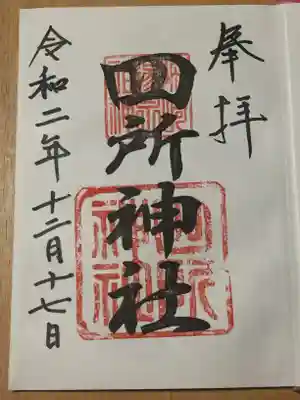 奉拝
四所神社
令和二年十二月十七日